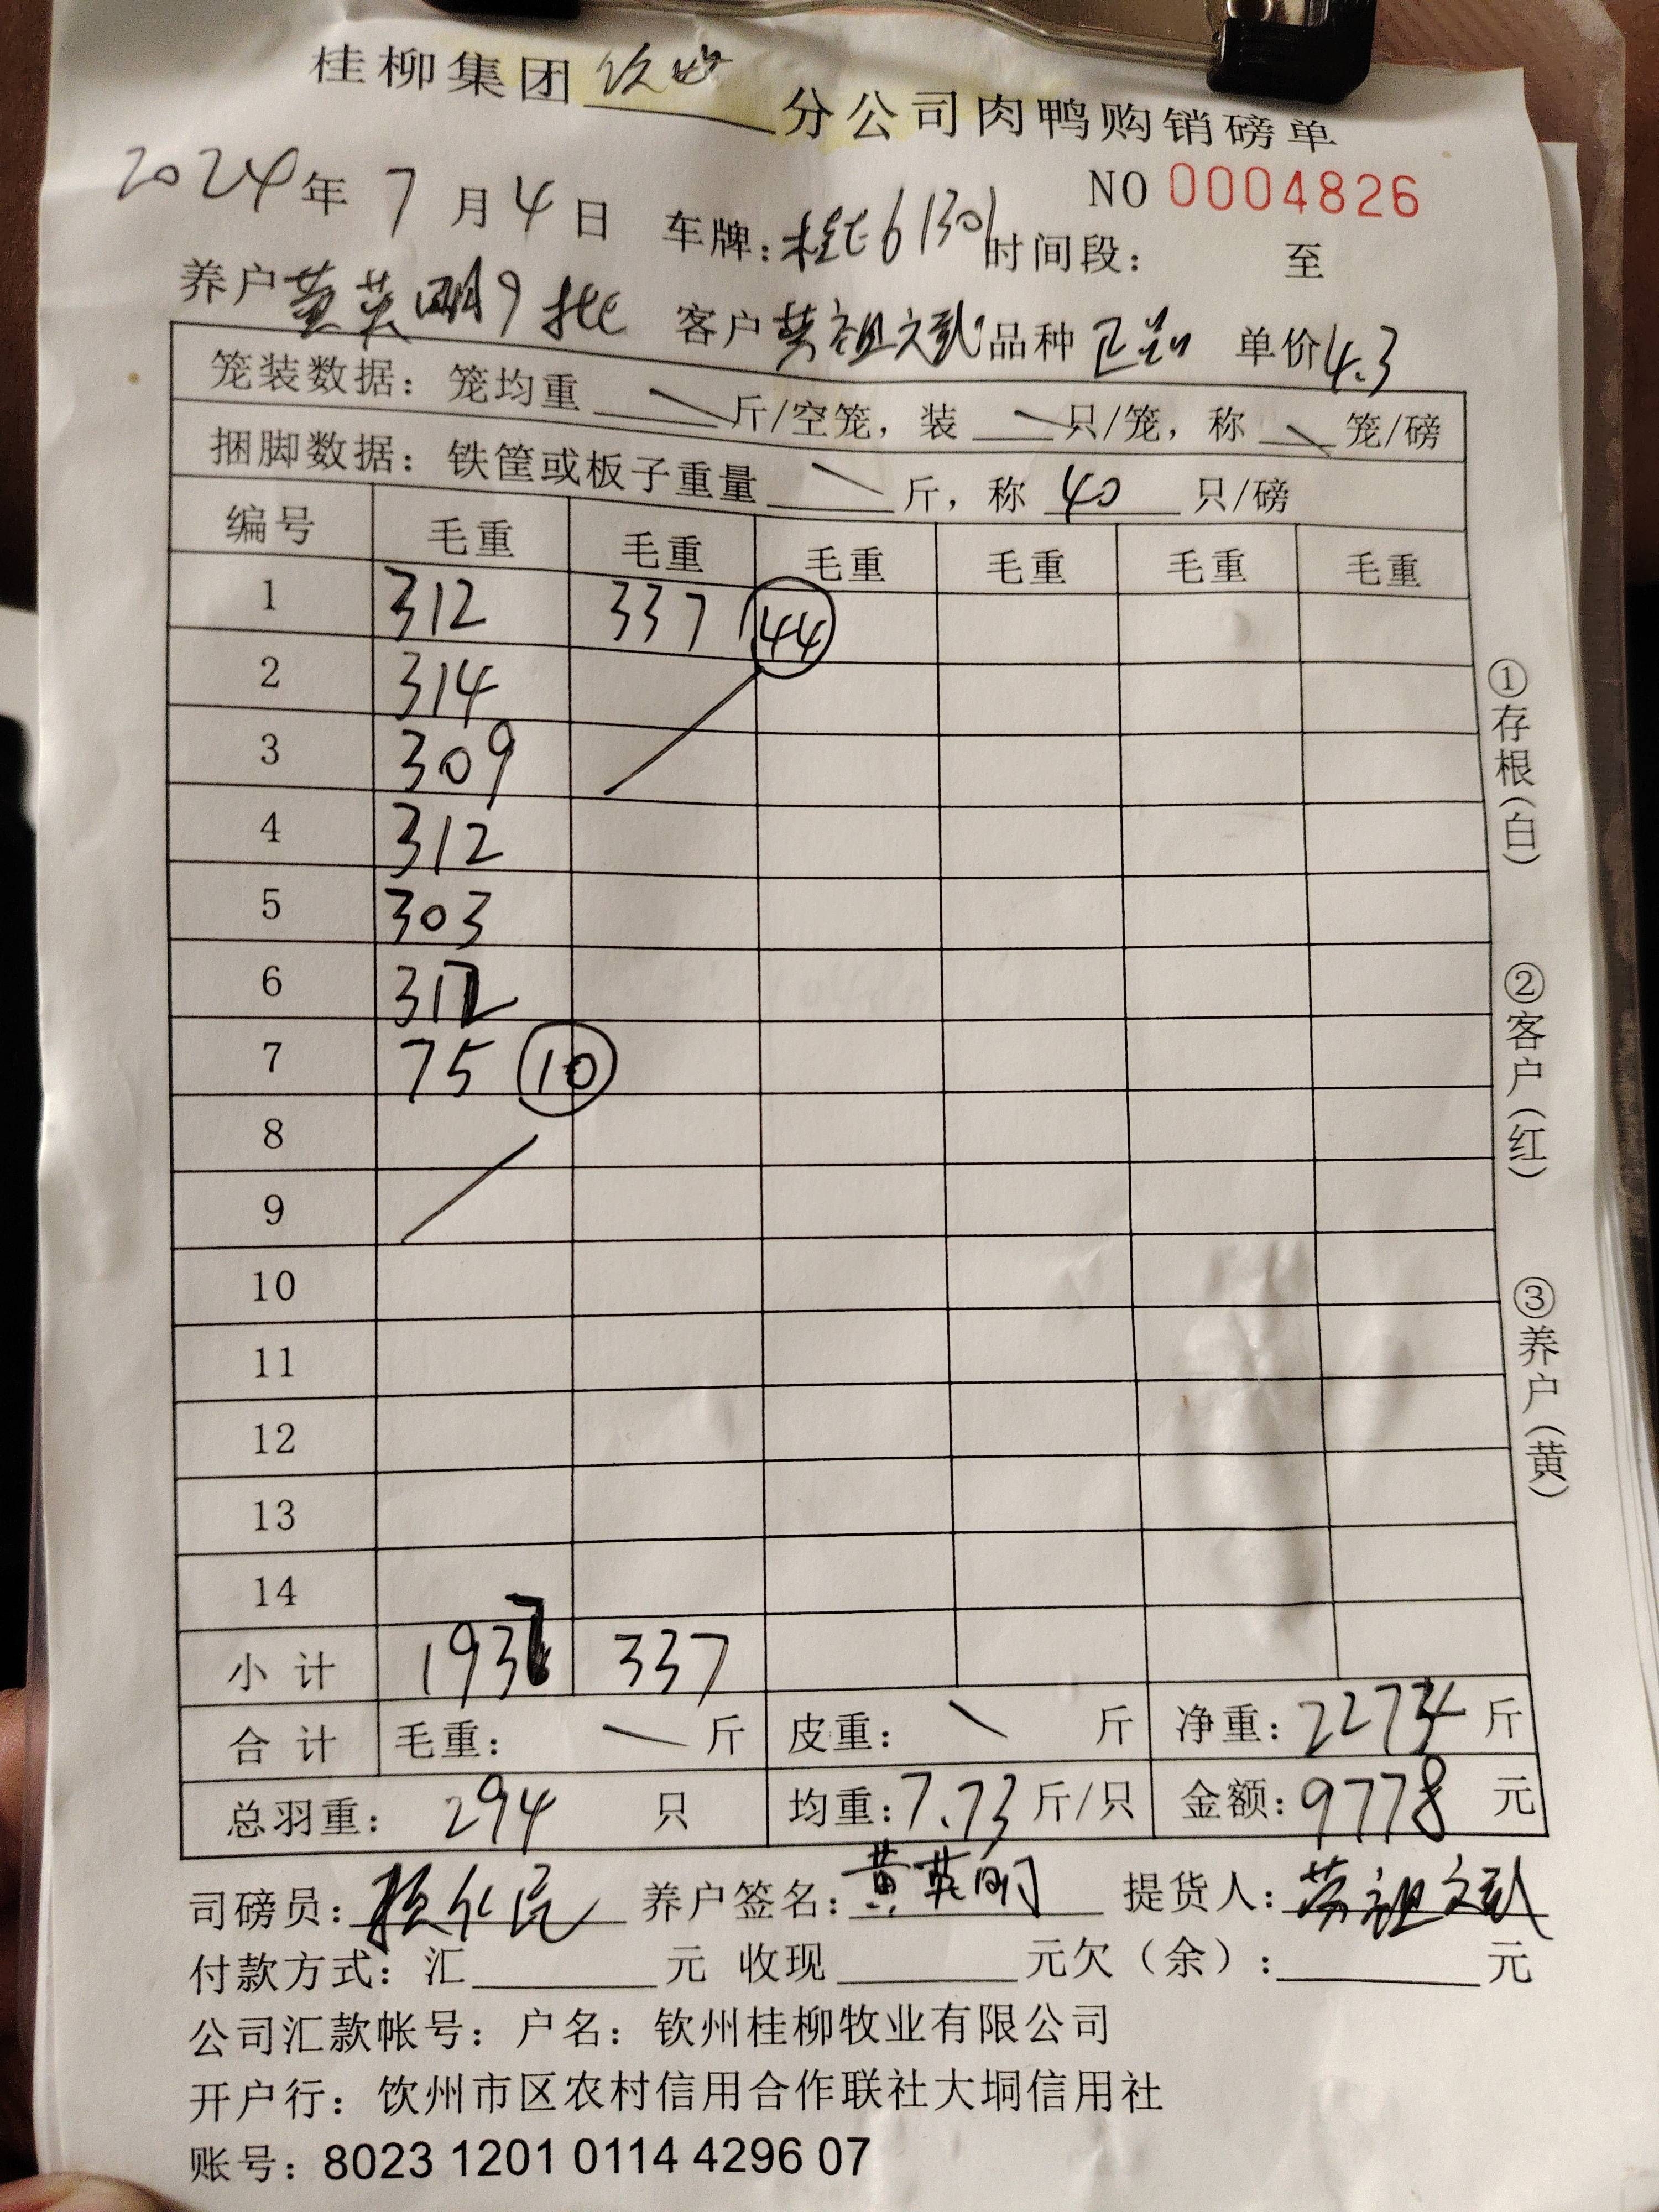 桂柳集团 钦州 分公司肉鸭购销磅单
NO 0004826
2024年 7月4日 车牌: 时间段: 至
养户 黄英明9批 客户 黄祖文武 品种 单价4.3
笼装数据: 笼均重 斤/空笼, 装 只/笼, 称 笼/磅
捆脚数据: 铁筐或板子重量 斤, 称 40 只/磅
编号 毛重 毛重 毛重 毛重 毛重 毛重
1 312 337 44
2 314
3 309
4 312
5 303
6 312
7 75 10
8
9
10
11
12
13
14
小计 1937 337
合计 毛重: 斤 皮重: 斤 净重: 2274 斤
总羽重: 294 只 均重: 7.73 斤/只 金额: 9778 元
司磅员: 养户签名: 黄英明 提货人: 黄祖文武
付款方式: 汇 元 收现 元欠(余): 元
公司汇款帐号: 户名: 钦州桂柳牧业有限公司
开户行: 钦州市区农村信用合作联社大垌信用社
账号: 8023 1201 0114 4296 07
①存根(白)
②客户(红)
③养户(黄)